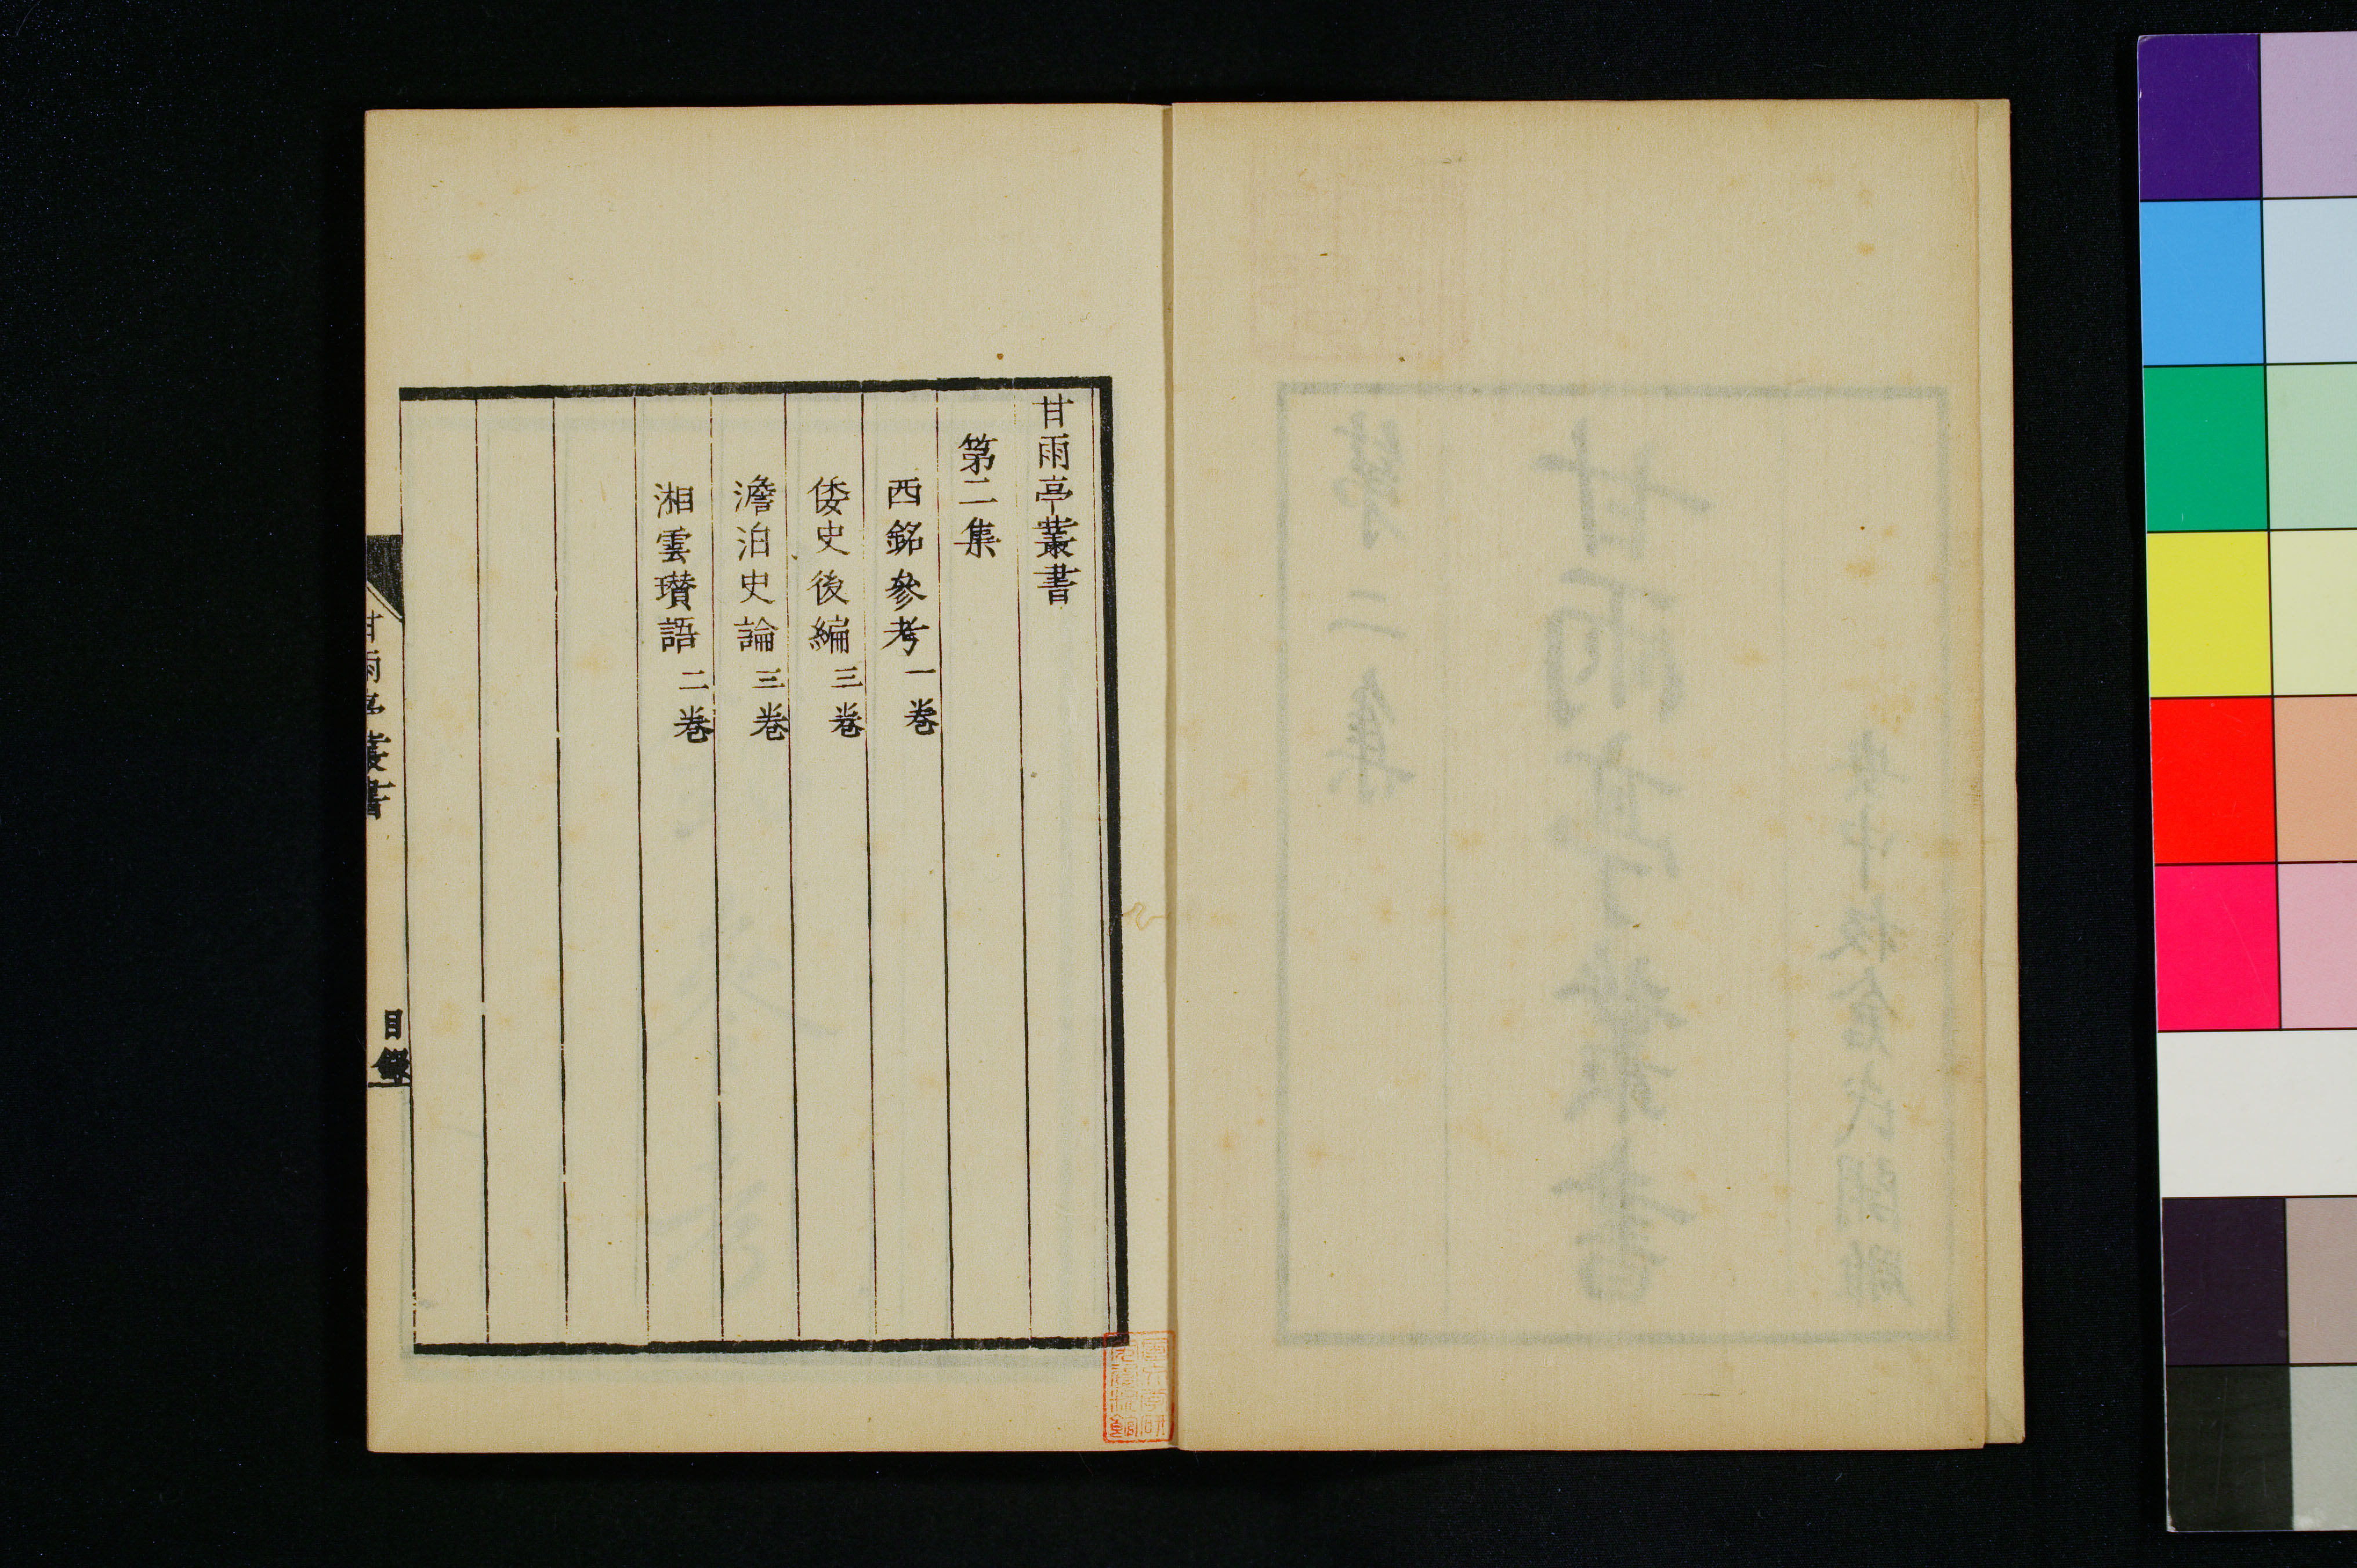 甘雨亭叢書
第二集
西銘參考一卷
倭史後編三卷
澹泊史論三卷
湘雲瓚語二卷
甘雨亭叢書
目錄